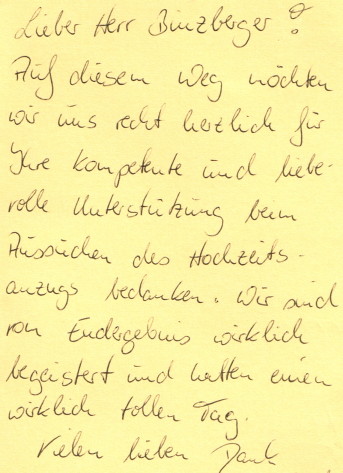 Lieber Herr Binzberger!
Auf diesem Weg möchten
wir uns recht herzlich für
Ihre kompetente und liebe-
volle Unterstützung beim
Aussuchen des Hochzeits-
anzugs bedanken. Wir sind
vom Endergebnis wirklich
begeistert und hatten einen
wirklich tollen Tag.
Vielen lieben Dank